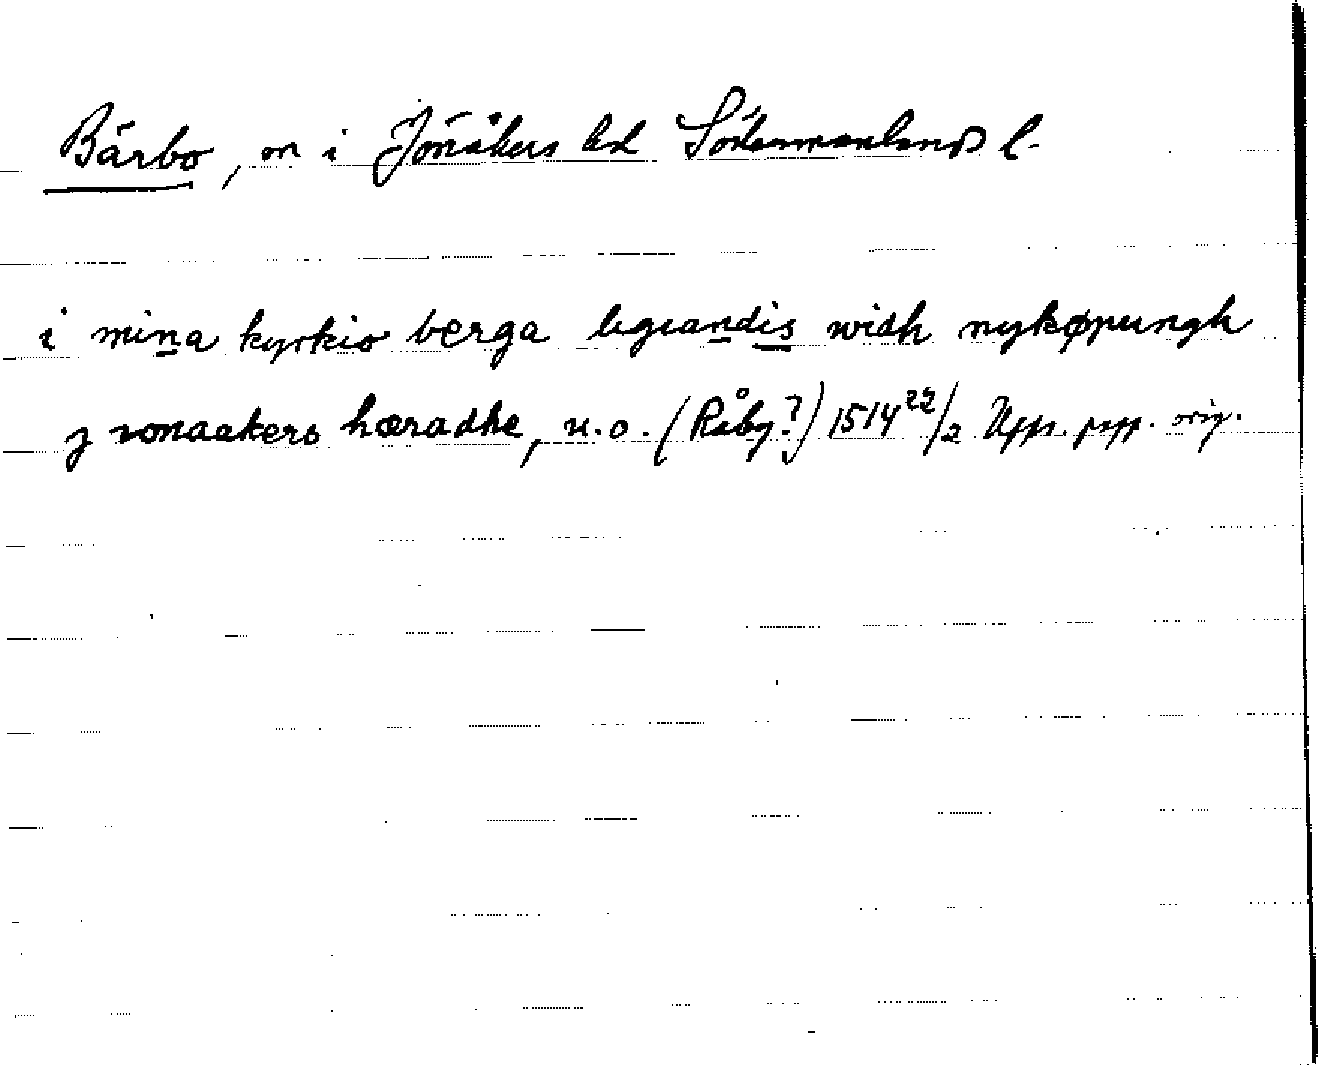 Bärbo, sn i Jönåkers hd Södermanlands l.
i mina kyrkio berga ligiandis widh nykøpungh
j ionaakers hæradhe, u.o. (Råby?) 1514 22/2 Upps. papp. orig.